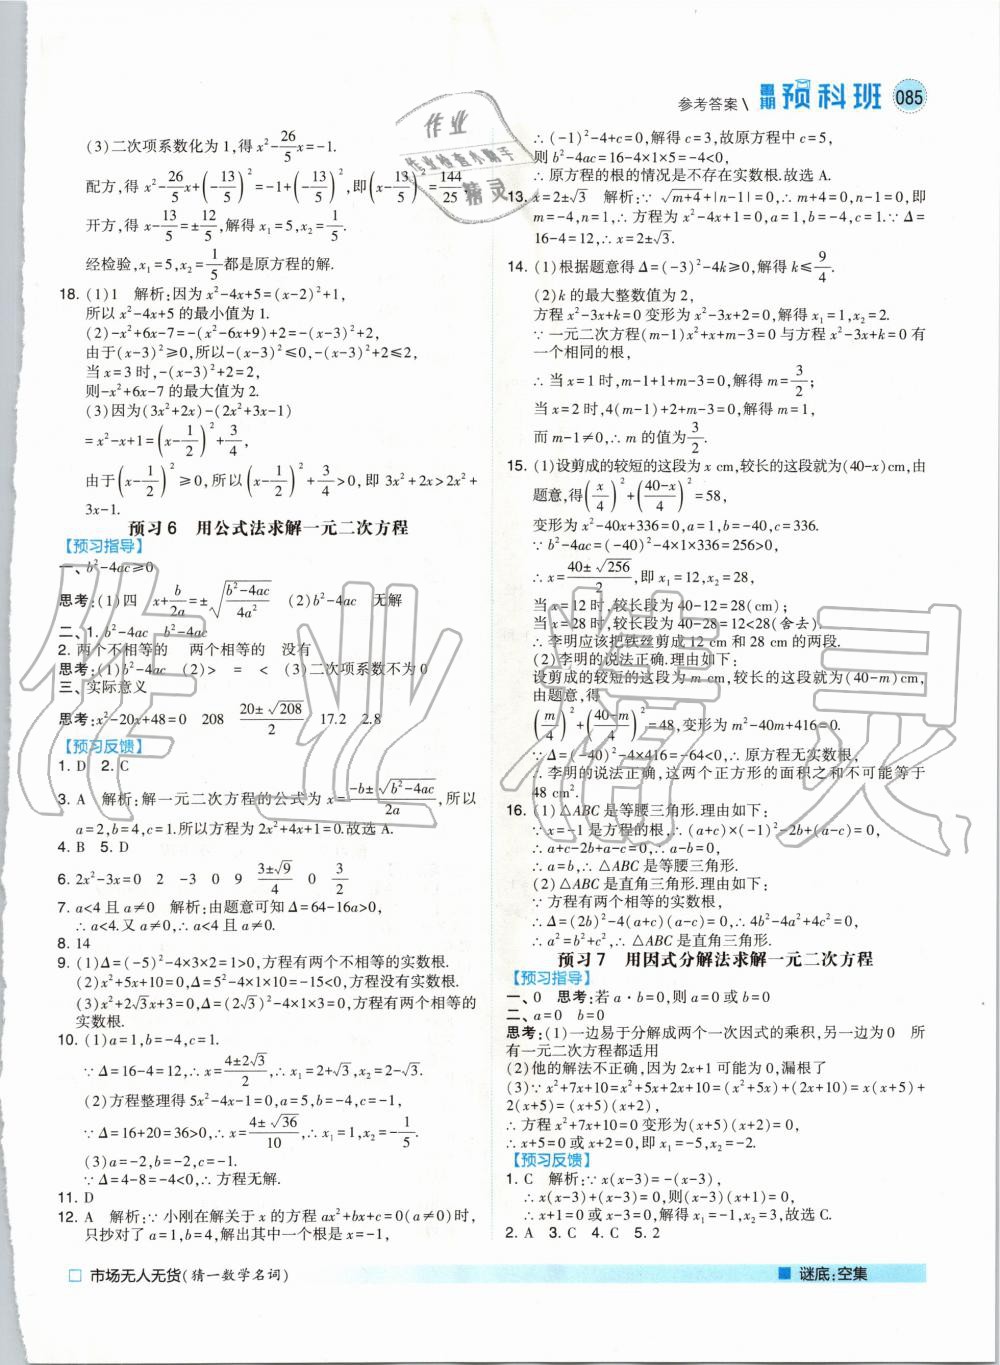 参考答案 \ 暑期 预科班 085
(3)二次项系数化为1,得x²-26/5x=-1.
配方,得x²-26/5x+(-13/5)²=-1+(-13/5)²,即(x-13/5)²=144/25,
开方,得x-13/5=±12/5,解得x₁=5,x₂=1/5.
经检验,x₁=5,x₂=1/5都是原方程的解.
18. (1)1 解析:因为x²-4x+5=(x-2)²+1,
所以x²-4x+5的最小值为1.
(2)-x²+6x-7=-(x²-6x+9)+2=-(x-3)²+2,
由于(x-3)²≥0,所以-(x-3)²≤0,-(x-3)²+2≤2,
当x=3时,-(x-3)²+2=2,
则-x²+6x-7的最大值为2.
(3)因为(3x²+2x)-(2x²+3x-1)
=x²-x+1=(x-1/2)²+3/4,
由于(x-1/2)²≥0,所以(x-1/2)²+3/4>0,即3x²+2x>2x²+
3x-1.
预习6 用公式法求解一元二次方程
【预习指导】
一、b²-4ac≥0
思考:(1)四 x+b/2a=±√(b²-4ac/4a²) (2)b²-4ac 无解
二、1. b²-4ac b²-4ac
2. 两个不相等的 两个相等的 没有
思考:(1)b²-4ac (2)> = < (3)二次项系数不为0
三、实际意义
思考:x²-20x+48=0 208 20±√208/2 17.2 2.8
【预习反馈】
1. D 2. C
3. A 解析:解一元二次方程的公式为x=-b±√(b²-4ac)/2a,所以
a=2,b=4,c=1.所以方程为2x²+4x+1=0.故选A.
4. B 5. D
6. 2x²-3x=0 2 -3 0 9 3±√9/4 0 3/2
7. a<4且a≠0 解析:由题意可知Δ=64-16a>0,
∴a<4.又a≠0,∴a<4且a≠0.
8. 14
9. (1)Δ=(-5)²-4×3×2=1>0,方程有两个不相等的实数根.
(2)x²+5x+10=0,Δ=5²-4×1×10=-15<0,方程没有实数根.
(3)x²+2√3x+3=0,Δ=(2√3)²-4×1×3=0,方程有两个相等的
实数根.
10. (1)a=1,b=-4,c=1.
∵Δ=16-4=12,∴x=4±2√3/2,∴x₁=2+√3,x₂=2-√3.
(2)方程整理得5x²-4x-1=0,a=5,b=-4,c=-1,
∵Δ=16+20=36>0,∴x=4±√36/10,∴x₁=1,x₂=-1/5.
(3)a=-2,b=-2,c=-1.
∵Δ=4-8=-4<0,∴方程无解.
11. D
12. A 解析:∵小刚在解关于x的方程ax²+bx+c=0(a≠0)时,
只抄对了a=1,b=4,解出其中一个根是x=-1,
∴(-1)²-4+c=0,解得c=3,故原方程中c=5,
则b²-4ac=16-4×1×5=-4<0,
∴原方程的根的情况是不存在实数根.故选A.
13. x=2±√3 解析:∵√(m+4)+|n-1|=0,∴m+4=0,n-1=0,即
m=-4,n=1,∴方程为x²-4x+1=0,a=1,b=-4,c=1.∵Δ=
16-4=12,∴x=2±√3.
14. (1)根据题意得Δ=(-3)²-4k≥0,解得k≤9/4.
(2)k的最大整数值为2,
方程x²-3x+k=0变形为x²-3x+2=0,解得x₁=1,x₂=2.
∵一元二次方程(m-1)x²+x+m-3=0与方程x²-3x+k=0有
一个相同的根,
∴当x=1时,m-1+1+m-3=0,解得m=3/2;
当x=2时,4(m-1)+2+m-3=0,解得m=1,
而m-1≠0,∴m的值为3/2.
15. (1)设剪成的较短的这段为x cm,较长的这段就为(40-x)cm,由
题意,得(x/4)²+(40-x/4)²=58,
变形为x²-40x+336=0,故a=1,b=-40,c=336.
∵b²-4ac=(-40)²-4×1×336=256>0,
∴x=40±√256/2,即x₁=12,x₂=28,
当x=12时,较长段为40-12=28(cm);
当x=28时,较长段为40-28=12<28(舍去).
∴李明应该把铁丝剪成12 cm和28 cm的两段.
(2)李明的说法正确.理由如下:
设剪成的较短的这段为m cm,较长的这段就为(40-m)cm,
由题意,得
(m/4)²+(40-m/4)²=48,变形为m²-40m+416=0.
∵Δ=(-40)²-4×416=-64<0,∴原方程无实数根,
∴李明的说法正确,这两个正方形的面积之和不可能等于
48 cm².
16. (1)△ABC是等腰三角形.理由如下:
∵x=-1是方程的根,∴(a+c)×(-1)²-2b+(a-c)=0,
∴a+c-2b+a-c=0,∴a-b=0,
∴a=b,∴△ABC是等腰三角形.
(2)△ABC是直角三角形.理由如下:
∵方程有两个相等的实数根,
∴Δ=(2b)²-4(a+c)(a-c)=0,∴4b²-4a²+4c²=0,
∴a²=b²+c²,∴△ABC是直角三角形.
预习7 用因式分解法求解一元二次方程
【预习指导】
一、0 思考:若a·b=0,则a=0或b=0
二、a=0 b=0
思考:(1)一边易于分解成两个一次因式的乘积,另一边为0 所
有一元二次方程都适用
(2)他的解法不正确.因为2x+1可能为0,漏根了
(3)∵x²+7x+10=x²+5x+2x+10=(x²+5x)+(2x+10)=x(x+5)+
2(x+5)=(x+5)(x+2),
∴方程x²+7x+10=0变形为(x+5)(x+2)=0,
∴x+5=0或x+2=0,即x₁=-5,x₂=-2.
【预习反馈】
1. C 解析:∵x(x-3)=-(x-3),
∴x(x-3)+(x-3)=0,则(x-3)(x+1)=0,
∴x+1=0或x-3=0,解得x₁=-1,x₂=3,故选C.
2. A 3. C 4. C 5. 2
市场无人无货(猜一数学名词)
谜底:空集
作业
作业检查小助手
精灵
作业精灵